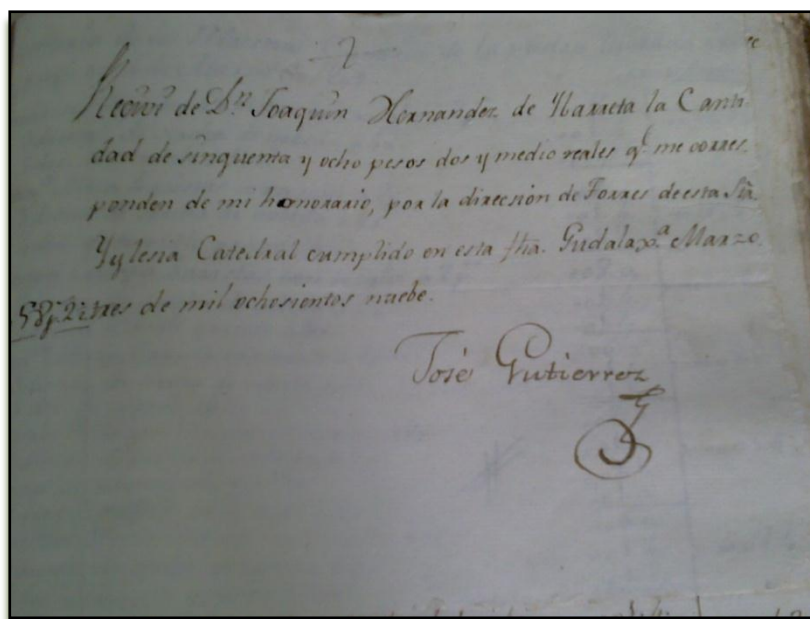 7
Recivi de Dn. Joaquin Hernandez de Narreta la Canti
dad de sinquenta y ocho pesos dos y medio reales q.e me corres
ponden de mi honorario, por la direcsion de Torres de esta Sta.
Yglesia Catedral cumplido en esta fha. Gudalaxa. Marzo
58p2 tres de mil ochosientos nuebe.
José Gutierrez